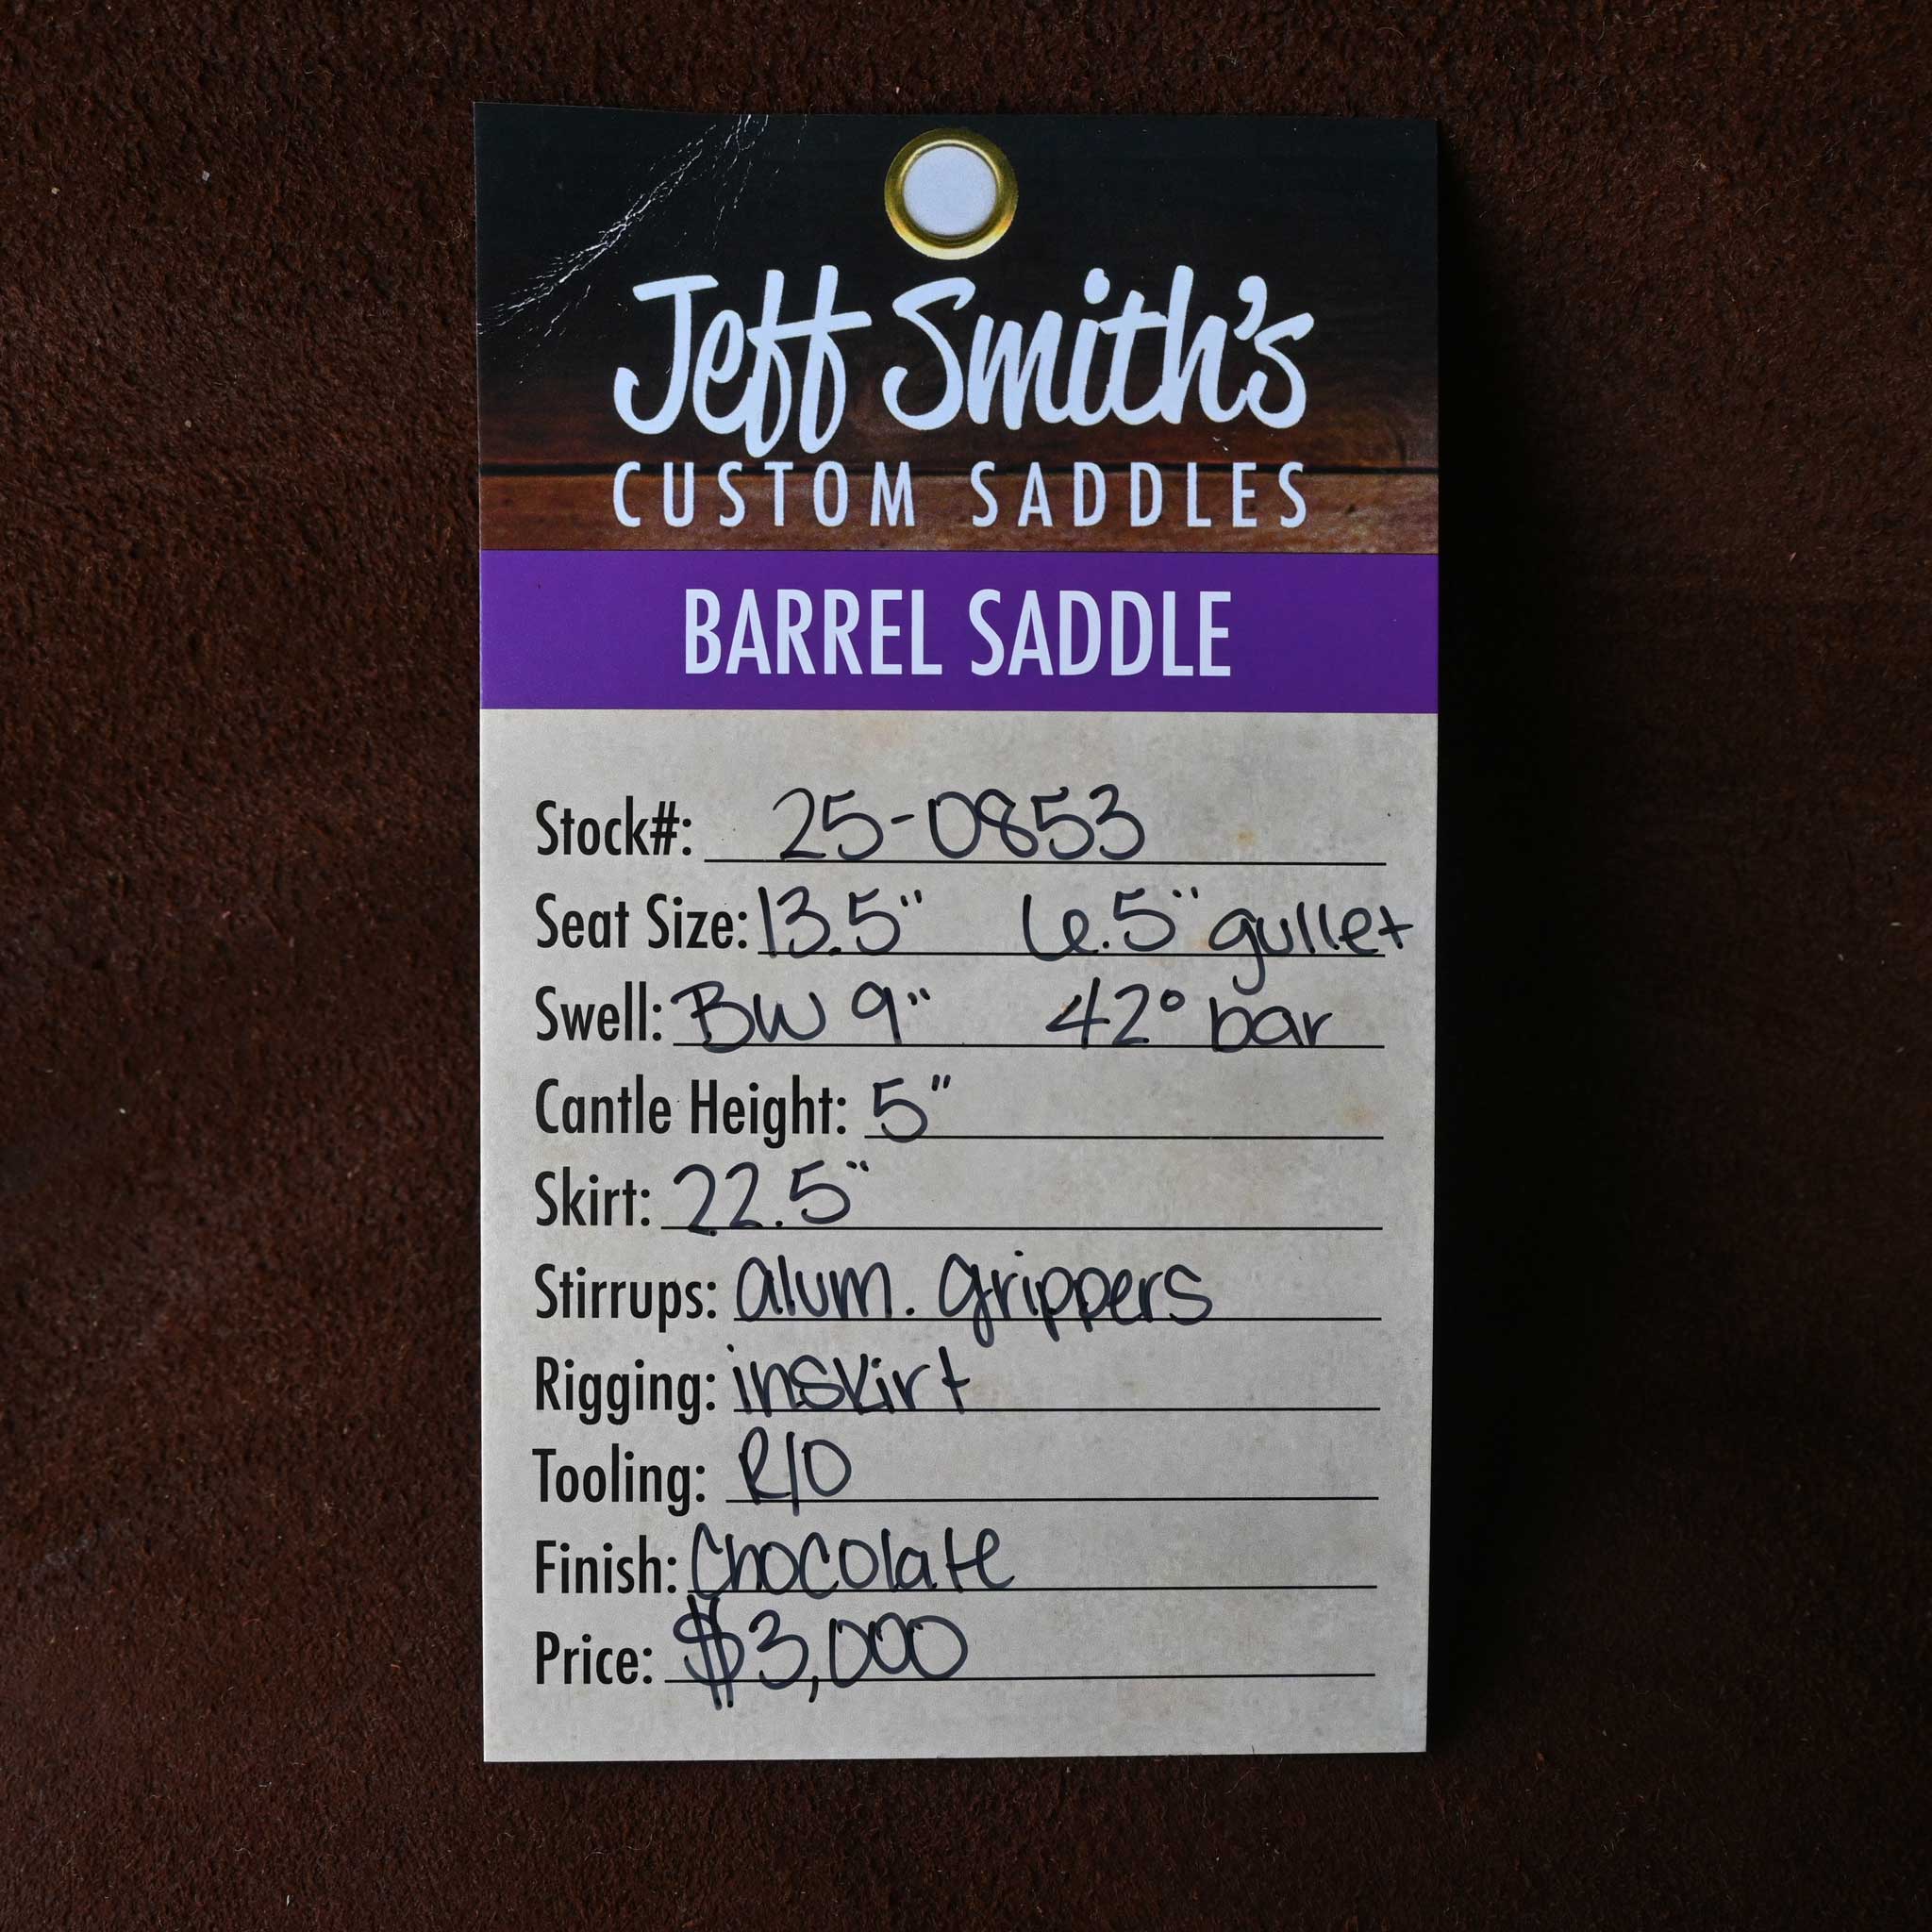 Jeff Smith's
CUSTOM SADDLES
BARREL SADDLE
Stock#: 25-0853
Seat Size: 13.5" 6.5" gullet
Swell: BW 9" 42° bar
Cantle Height: 5"
Skirt: 22.5"
Stirrups: alum. grippers
Rigging: inskirt
Tooling: R/O
Finish: Chocolate
Price: $3,000